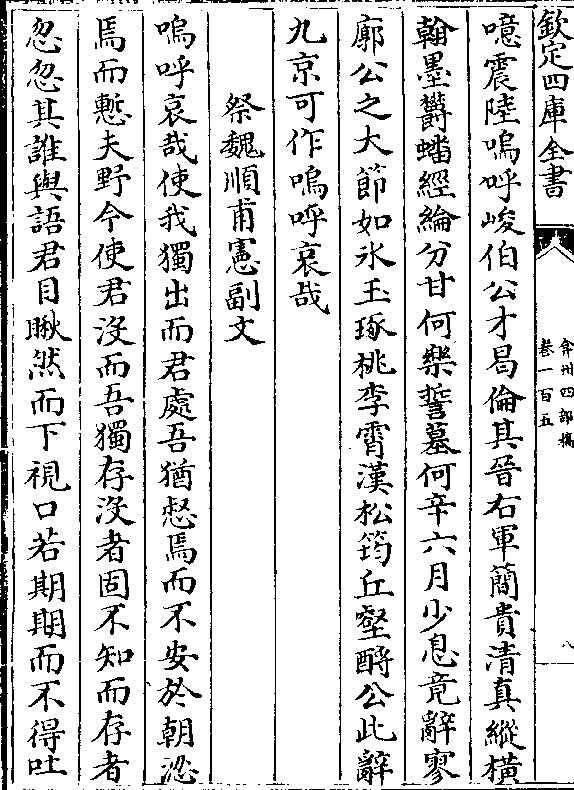 欽定四庫全書
弇州四部稿
卷一百五
八
噫震陸嗚呼峻伯公才曷倫其晉右軍簡貴清真縱橫
翰墨欝蟠經綸分甘何樂誓墓何辛六月少息竟辭寥
廓公之大節如氷玉琢桃李霄漢松筠丘壑酧公此辭
九京可作嗚呼哀哉
祭魏順甫憲副文
嗚呼哀哉使我獨出而君處吾猶愁焉而不安於朝忍
焉而慙夫野今使君沒而吾獨存沒者固不知而存者
忽忽其誰與語君目瞅然而下視口若期期而不得吐